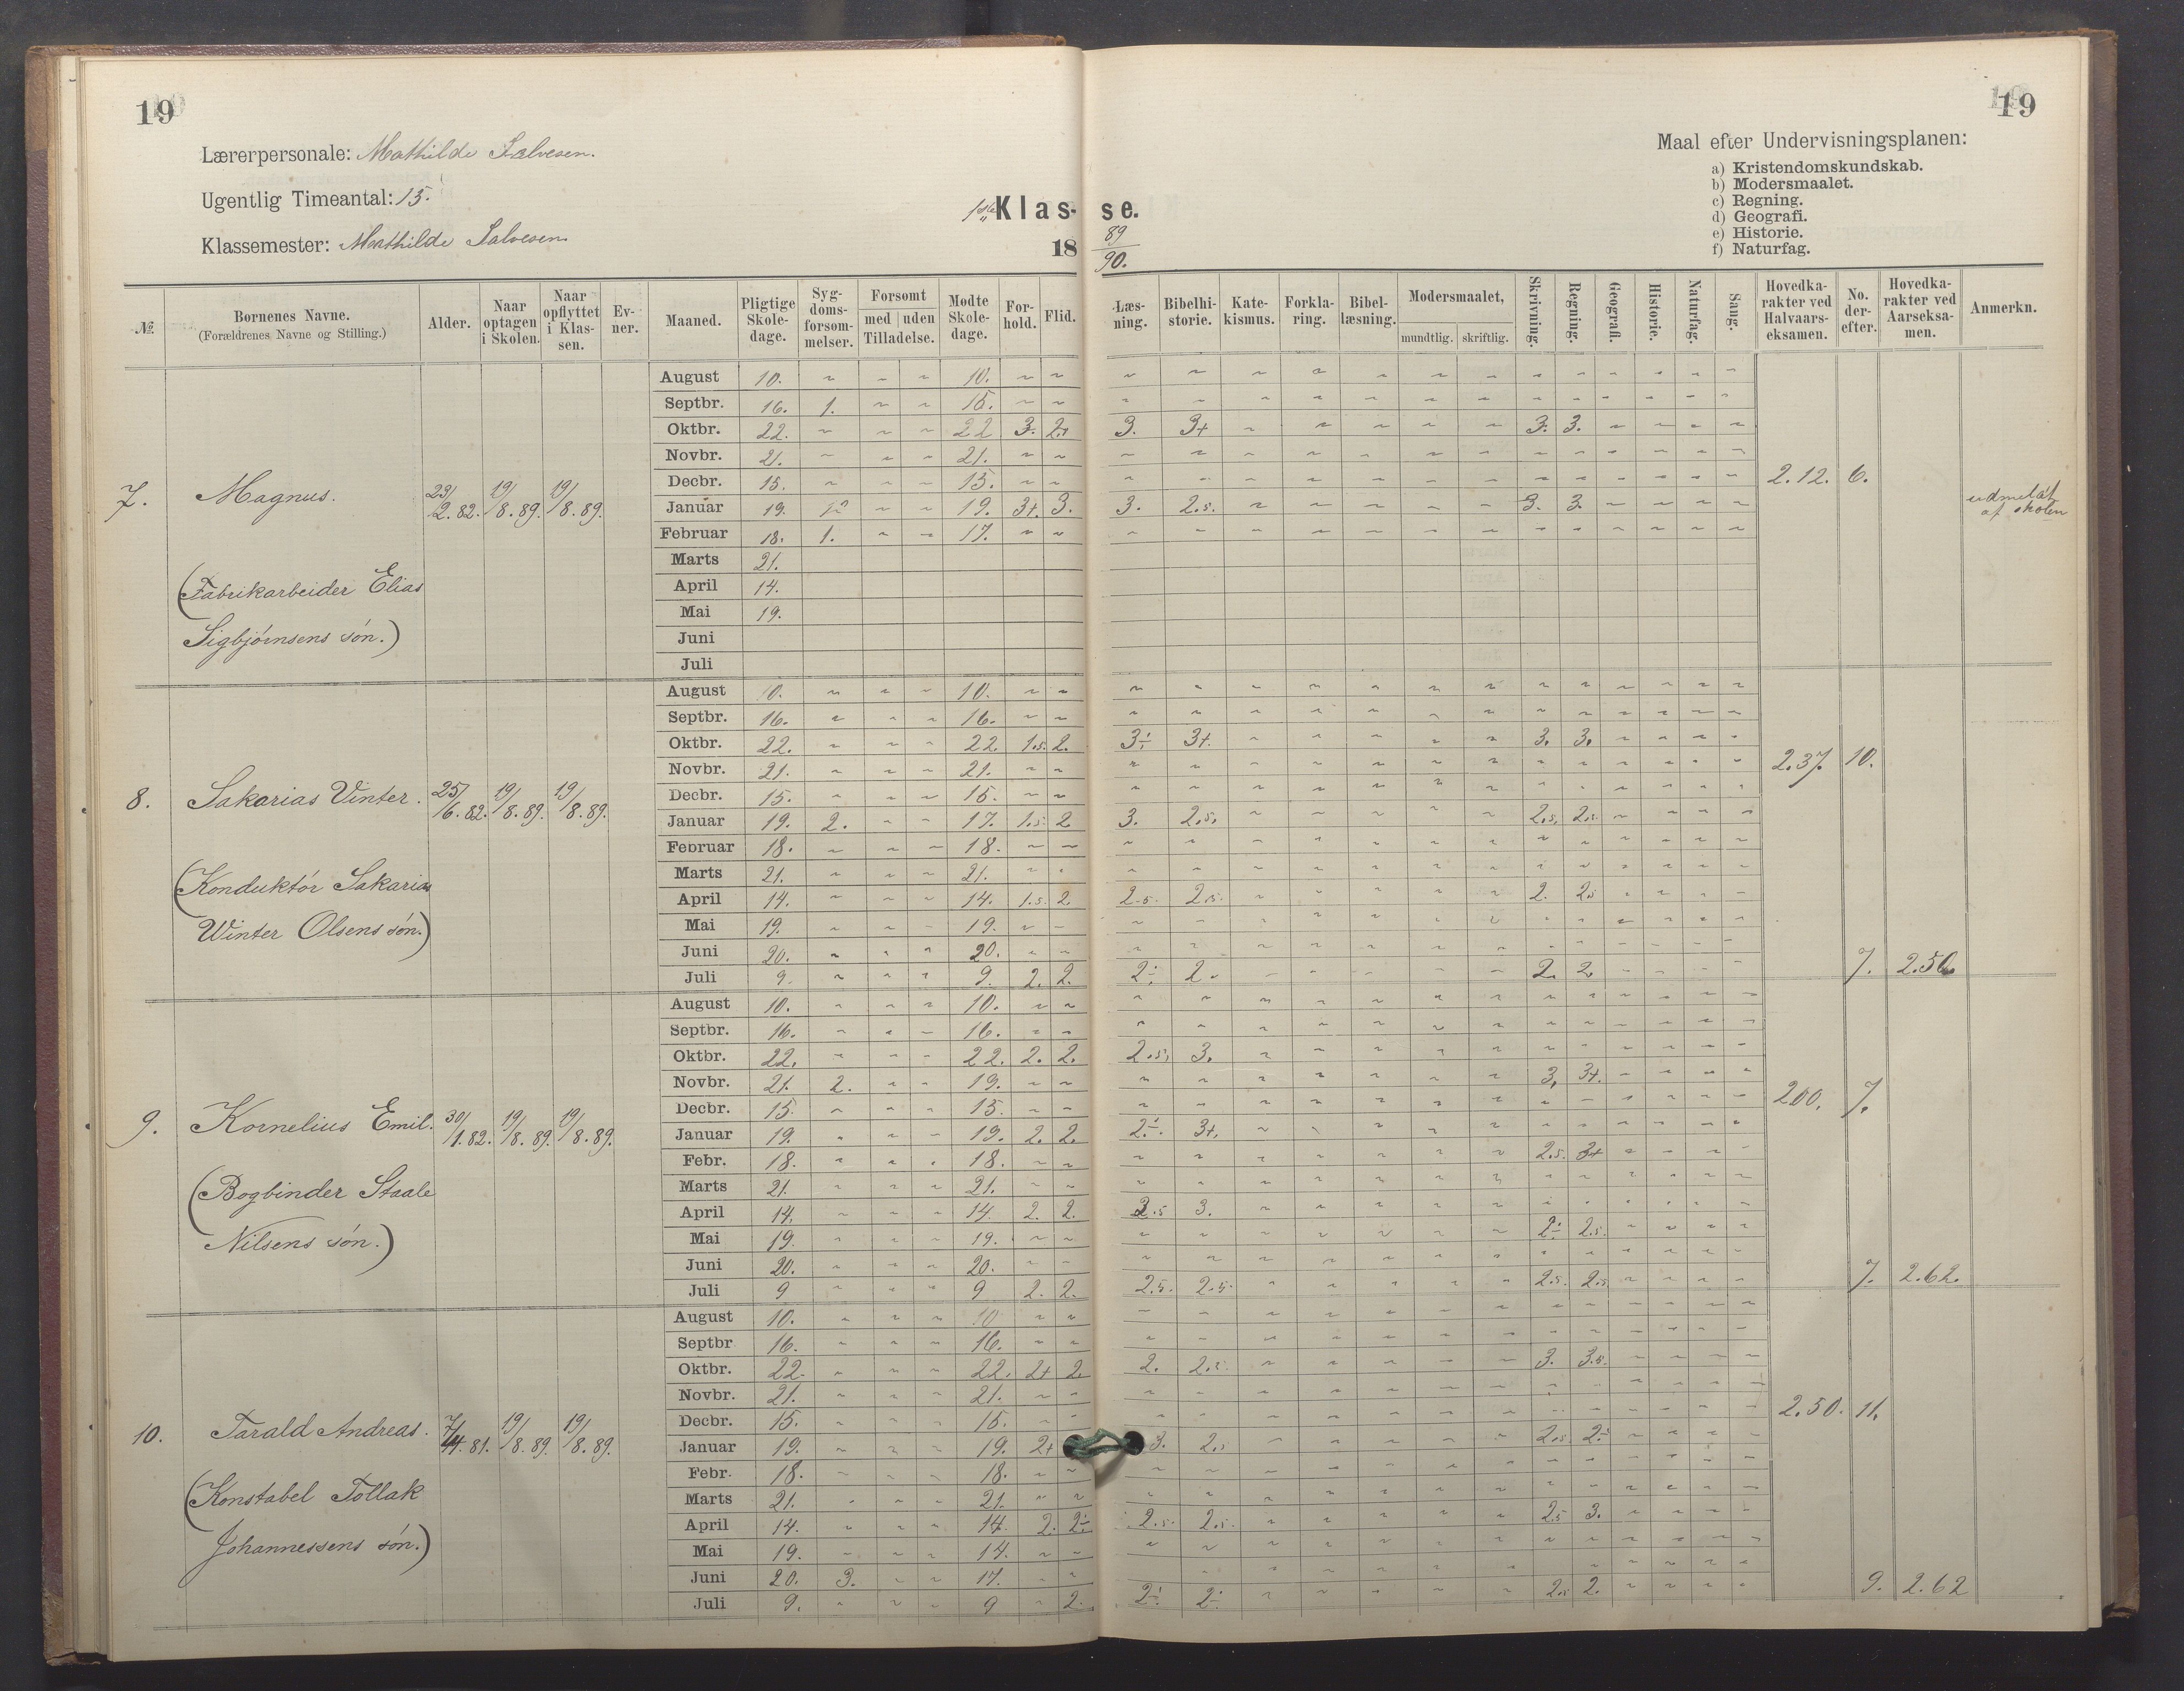 19
19
Lærerpersonale: Mathilde Salvesen.
Ugentlig Timeantal: 15.
Klassemester: Mathilde Salvesen
1ste Klas- se.
18 89/90.
Maal efter Undervisningsplanen:
a) Kristendomskundskab.
b) Modersmaalet.
c) Regning.
d) Geografi.
e) Historie.
f) Naturfag.
№ Børnenes Navne. (Forældrenes Navne og Stilling.) Alder. Naar optagen i Skolen. Naar opflyttet i Klassen. Evner. Maaned. Pligtige Skoledage. Sygdomsforsommelser. Forsomt med uden Tilladelse. Mødte Skoledage. Forhold. Flid. Læsning. Bibelhistorie. Katekismus. Forklaring. Bibellæsning. Modersmaalet, mundtlig. skriftlig. Skrivning. Regning. Geografi. Historie. Naturfag. Sang. Hovedkarakter ved Halvaarseksamen. No. derefter. Hovedkarakter ved Aarseksamen. Anmerkn.
7. Magnus. 23/2.82. 19/8.89. 19/8.89.
(Fabrikarbeider Elias
Sigbjörnsens sön.)
August 10. 10.
Septbr. 16. 1. 15.
Oktbr. 22. 22 3. 2+ 3. 3+ 3. 3.
Novbr. 21. 21.
Decbr. 15. 15. 2.12. 6.
Januar 19. 19. 3+. 3. 3. 2.5. 3. 3. udmeldt af skolen
Februar 18. 1. 17.
Marts 21.
April 14.
Mai 19.
Juni
Juli
8. Sakarias Vinter. 25/6.82. 19/8.89. 19/8.89.
(Konduktör Sakarias
Winter Olsens sön.)
August 10. 10.
Septbr. 16. 16.
Oktbr. 22. 22. 1.5. 2. 3÷ 3+. 3. 3.
Novbr. 21. 21. 2.37. 10.
Decbr. 15. 15.
Januar 19. 2. 17. 1.5. 2 3. 2.5. 2.5. 2.5.
Februar 18. 18.
Marts 21. 21.
April 14. 14. 1.5. 2. 2.5. 2.5. 2. 2.5
Mai 19. 19.
Juni 20. 20.
Juli 9. 9. 2. 2. 2÷ 2. 2. 2. 7. 2.50.
9. Kornelius Emil. 30/1.82. 19/8.89. 19/8.89.
(Bogbinder Staale
Nilsens sön.)
August 10. 10.
Septbr. 16. 16.
Oktbr. 22. 22. 2. 2. 2.5. 3.
Novbr. 21. 2. 19. 3. 3+.
Decbr. 15. 15. 2.00. 7.
Januar 19. 19. 2. 2. 2÷. 3+.
Febr. 18. 18. 2.5. 3+
Marts 21. 21.
April 14. 14. 2. 2. 2.5 3.
Mai 19. 19. 2÷ 2.5.
Juni 20. 20.
Juli 9 9 2. 2. 2.5. 2.5. 2.5. 2.5. 7. 2.62.
10. Tarald Andreas. 19/8.89. 19/8.89.
(Konstabel Tollak
Johannessens sön.)
August 10. 10
Septbr 16. 16.
Oktbr. 22. 22. 2+ 2. 2. 2.5. 3. 3.5.
Novbr. 21. 21.
Decbr. 15. 15. 2.50. 11.
Januar 19. 19. 2+ 3. 2.5 2.5. 2÷
Febr. 18. 18.
Marts 21. 21.
April 14. 14. 2. 2÷ 2.5. 2.5. 2.5 3.
Mai 19. 14.
Juni 20. 3. 17.
Juli 9. 9 2. 2÷. 2÷. 2.5 2. 9. 2.62